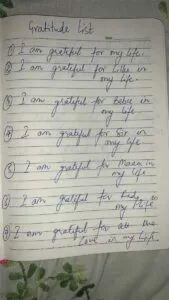 Gratitude List
① I am grateful for my life.
② I am grateful for in
my life
③ I am grateful for in
my life
④ I am grateful for Sir in
my life
⑤ I am grateful for in
my life
⑥ I am grateful for in
my life
⑦ I am grateful for all the
Love in my life.